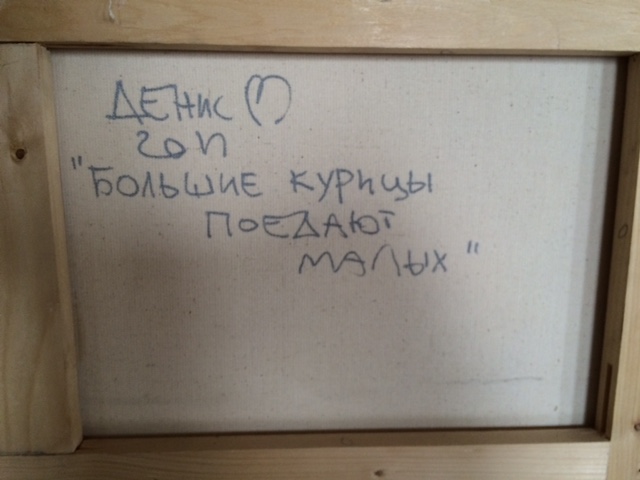 ДЕНИС
"БОЛЬШИЕ КУРИЦЫ
ПОЕДАЮТ
МАЛЫХ"